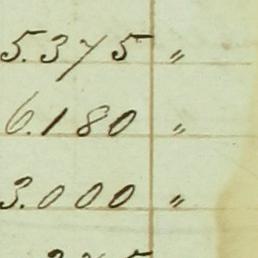 5.375 "
6.180 "
3.000 "